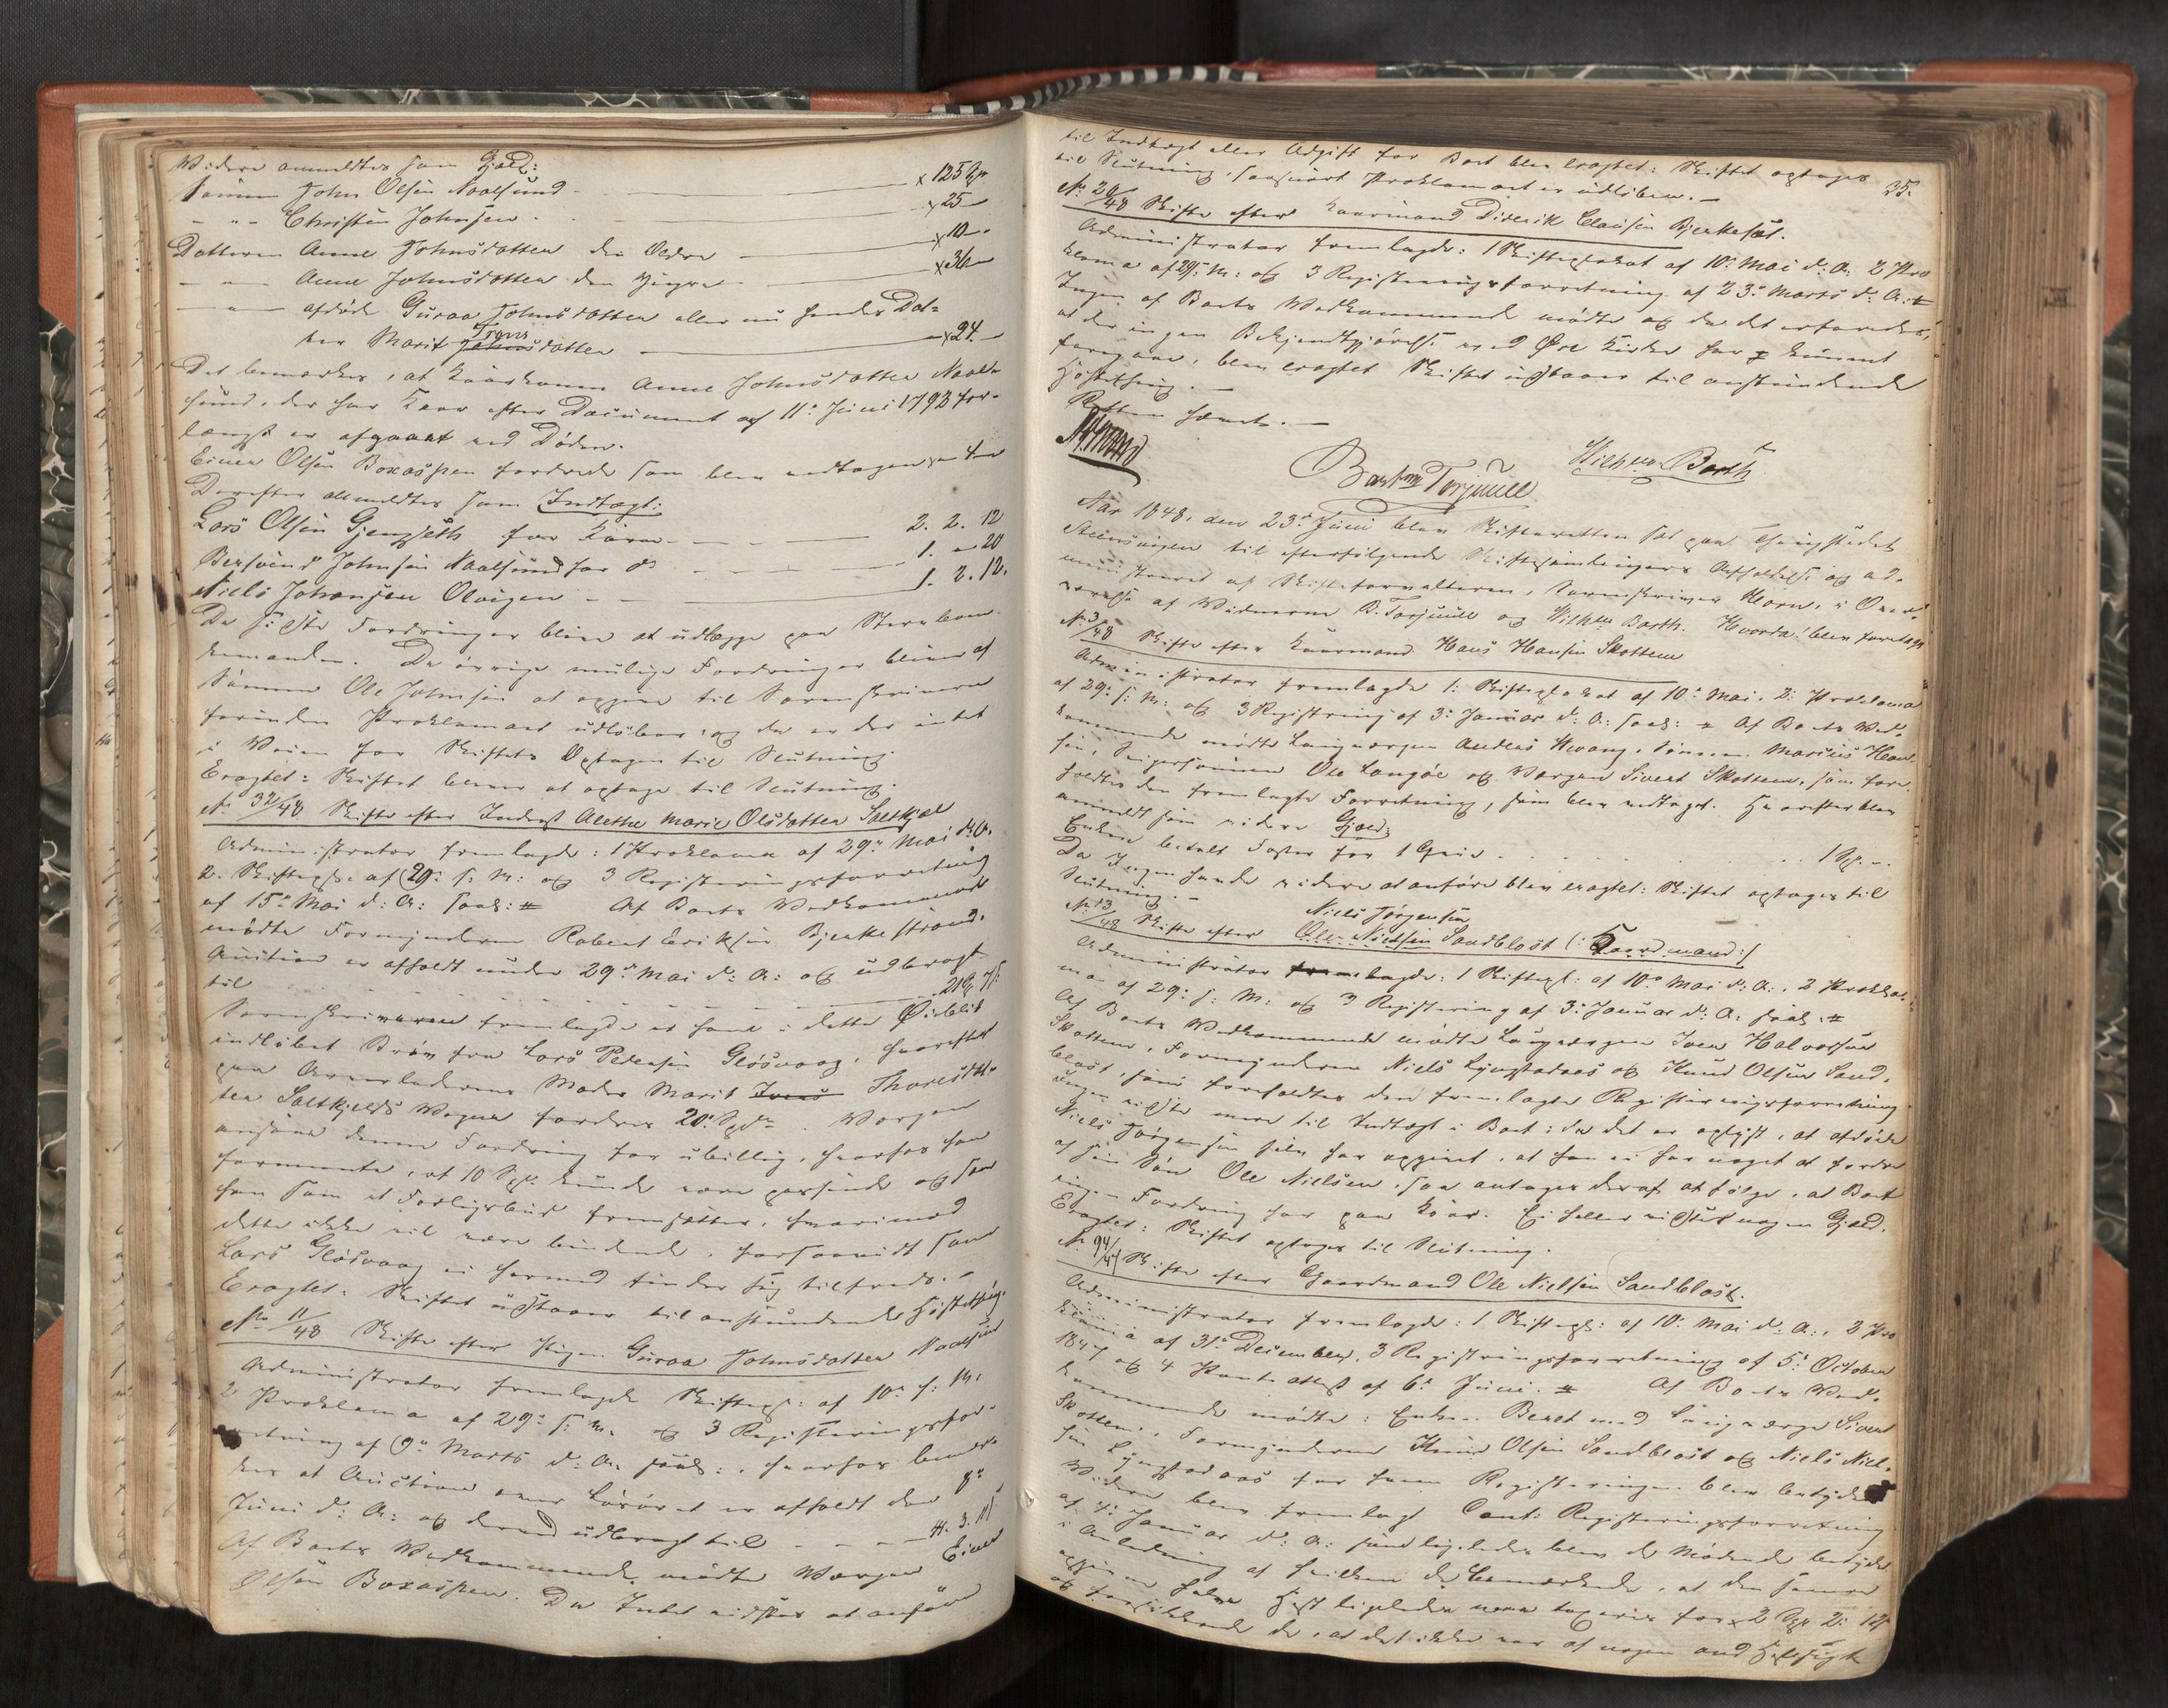 Widere anmeldtes som Gjæld:
Sønnen John Olsen Naalsund x 125 Spd
- " - Christen Johnsen x 25 -
Datteren Anne Johnsdatter den Ældre x 10 -
- " - Anne Johnsdatter den Yngre x 36 -
- " - afdøde Guroe Johnsdatter eller nu hendes Dat-
ter Marit Iversdatter x 24. -
Det bemærkes, at Kaarkonen Anne Johnsdatter Naal-
sund, der har Kaar efter Document af 11te Juni 1793 for-
længst er afgaaet ved Døden.
Einer Olsen Boxaspen fordrede som blev vedtagen
Derefter anmeldtes som Indtægt:
Lars Olsen Gjengseth for Korn 2. 2. 12
Bersvend Johnsen Naalsund for do 1. " 20
Niels Johansen Olvigen 1. 2. 12.
De sidste Fordringer bliver at udlægge paa Stervbom-
komanden. De øvrige mulige Fordringer bliver af
Sønnen Ole Johnsen at opgive til Sorenskriveren
forinden Proklamaet udløber, og da er der intet
i Veien for Skiftets Optagen til Slutning.
Eragtet: Skiftet bliver at optage til Slutning.
No 32/48 Skifte efter Inderst Alethe Marie Olsdatter Saltkjel
Administrator fremlagde: 1 Proklama af 29de Mai d. A.
2. Skiftepl. af 29de s. M: og 3 Registeringsforretning
af 15de Mai d: A: saal: # Af Boets Vedkommende
mødte Formynderen Robert Eriksen Bjerkestrand.
Auction er afholdt under 29de Mai d: A: og udbragt
til 21
Sorenskriveren fremlagde et ham i dette Øieblik
indløbet Brev fra Lars Pedersen Gløsvaag, hvorefter
paa Arveladerens Moder Marit Thoresdat-
ter Saltkjelds Vegne fordres 20 Spd. Værgen
ansaae denne Fordring for ubillig, hvorfor han
formente, at 10 Spd. kunde være passende og som
han som et Forligsbud fremsætter, hvorimod
dette ikke vil være bindende, forsaavidt som
Lars Gløsvaag ei hermed finder sig tilfreds. -
Eragtet: Skiftet udstaaer til anstundende Høstething.
No 11/48 Skifte efter Pigen Guroe Johnsdatter Naalsund
Administrator fremlagde Skiftepl: af 10de s: M.
2 Proklama af 29de s. M. og 3 Registeringsfor-
retning af 9de Marts d: A: saal:, hvorfor bemær-
kes at Auction over Løsøret er afholdt den 8de
Juni d: A: og derved udbragt til 44. 3. 11
Af Boets Vedkommende mødte Værgen Einer
Olsen Boxaspen. Da Intet vidstes at anføre
35.
til Indtægt eller Udgift for Boet blev eragtet: Skiftet optages
til Slutning, saasnart Proklamaet er udløben. -
No 20/48 Skifte efter Kaarmand Diderik Clausen Bjerkesæt.
Administrator fremlagde: 1 Skifteplakat af 10de Mai d: A: 2 Pro
klama af 29de s. M: og 3 Registeringsforretning af 23de Marts d: A: #
Ingen af Boets Vedkommende mødte og da det erfaredes,
at der ingen Bekjendtgjørelse ved Øre Kirke har kunnet
foregaae, blev eragtet Skiftet udstaaer til anstundende
Høstething. -
Retten hævet. -
Barthm Torjuull Wilhlm Barth
Aar 1848, den 23de Juni blev Skifteretten sat paa Thingstedet
Steensvigen til efterfølgende Skiftesamlingers Afholdelse og ad-
ministreret af Skifteforvalteren, Sorenskriver Klorn, i Over-
værelse af Vidnerne B. Torjuull og Wilhlm Barth. Hvorda blev foretaget
No 3/48 Skifte efter Kaarmand Hans Hansen Skottem
Administrator fremlagde 1: Skifteplakat af 10de Mai. 2: Proklama
af 29de s: M: og 3 Registring af 3de Januar d: A: saal: # Af Boets Ved-
kommende mødte Laugværgen Anders Hevang, Sønnen Marcus Han-
sen, Svigersønnen Ole Langøe og Værgen Sivert Skottem, som fore-
holdtes den fremlagte Forretning, som blev vedtaget. Herefter blev
anmeldt som videre Gjæld:
Enken betalt Foster for 1 Spd. -
Da Ingen havde videre at anføre blev eragtet: Skiftet optages til
Slutning. -
No 13/48 Skifte efter Niels Jørgensen Sandblost (: Kaarmand :)
Administrator fremlagde: 1 Skiftepl: af 10de Mai d: A:, 2 Prokla-
ma af 29de s: M: og 3 Registering af 3de Januar d: A: saal: #
Af Boets Vedkommende mødte Laugværgen Iver Halvorsen
Skottem, Formynderen Niels Lyngstadaas og Knud Olsen Sand-
blost, som foreholdtes den fremlagte Registeringsforretning.
Ingen vidste mere til Indtægt i Boet; da det er oplyst, at afdøde
Niels Jørgensen selv har opgivet, at han ei har noget at fordre
af sin Søn Ole Nielsen, saa antages deraf at følge, at Boet
ingen Fordring har paa Kaar. Ei heller vidstes nogen Gjæld.
Eragtet: Skiftet optages til Slutning.
No 94/47 Skifte efter Gaardmand Ole Nielsen Sandblost.
Administrator fremlagde: 1 Skiftepl: af 10de Mai d: A:, 2 Pro
klama af 31te December, 3 Registringsforretning af 5te October
1847 og 4 Panteattest af 6te Juni. # Af Boets Ved-
kommende mødte: Enken Beret med Laugværge Sivert
Skottem, Formynderne Knud Olsen Sandblost og Niels Niel-
sen Lyngstadaas for hvem Registeringen blev betydet
Videre blev fremlagt Cont: Registeringsforretning
af 4de Januar d: A: hvilken ligeledes blev de Mødende betydet
i Anledning af hvilken de bemærkede, at den samme
opgivne halve Hest ligeledes være taxeret for 2 Spd 2: 12
og forsikkrede de, at det ikke var af nogen ond Hensigt